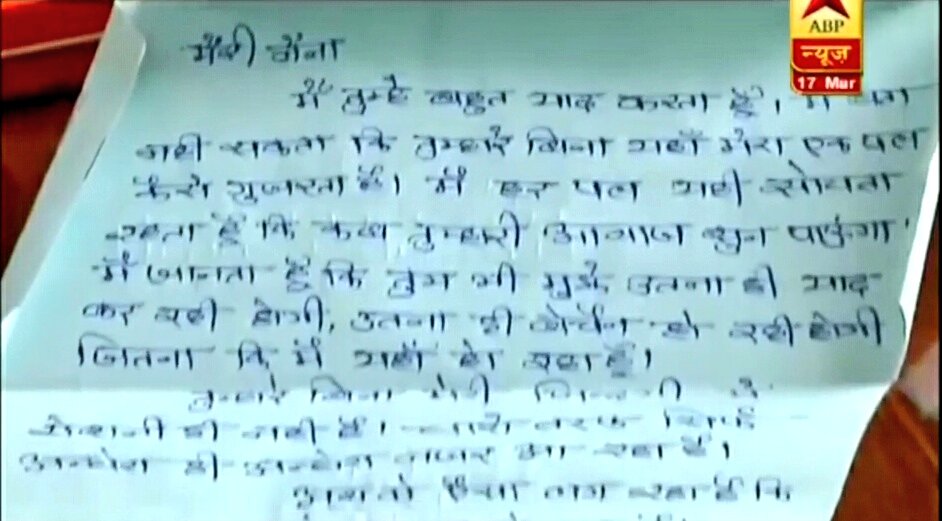 ABP
न्यूज़
17 Mar
मेरी मैना
मैं तुम्हें बहुत याद करता हूँ। मैं
नहीं सकता कि तुम्हारे बिना यहाँ मेरा एक पल
कैसे गुजरता है। मैं हर पल यही सोचता
रहता हूँ कि कब तुम्हारी आवाज शुन पाऊंगा
मैं जानता हूँ कि तुम भी मुझे उतना ही याद
कर रही होगी, उतना ही बेचैन हो रही होगी
जितना कि मैं यहाँ हो रहा हूँ।
तुम्हारे बिना मेरी जिन्दगी में
रोशनी ही नहीं है। चारो तरफ सिर्फ
अन्धेरा ही अन्धेरा नजर आ रहा है।
अब तो ऐसा लग रहा है कि